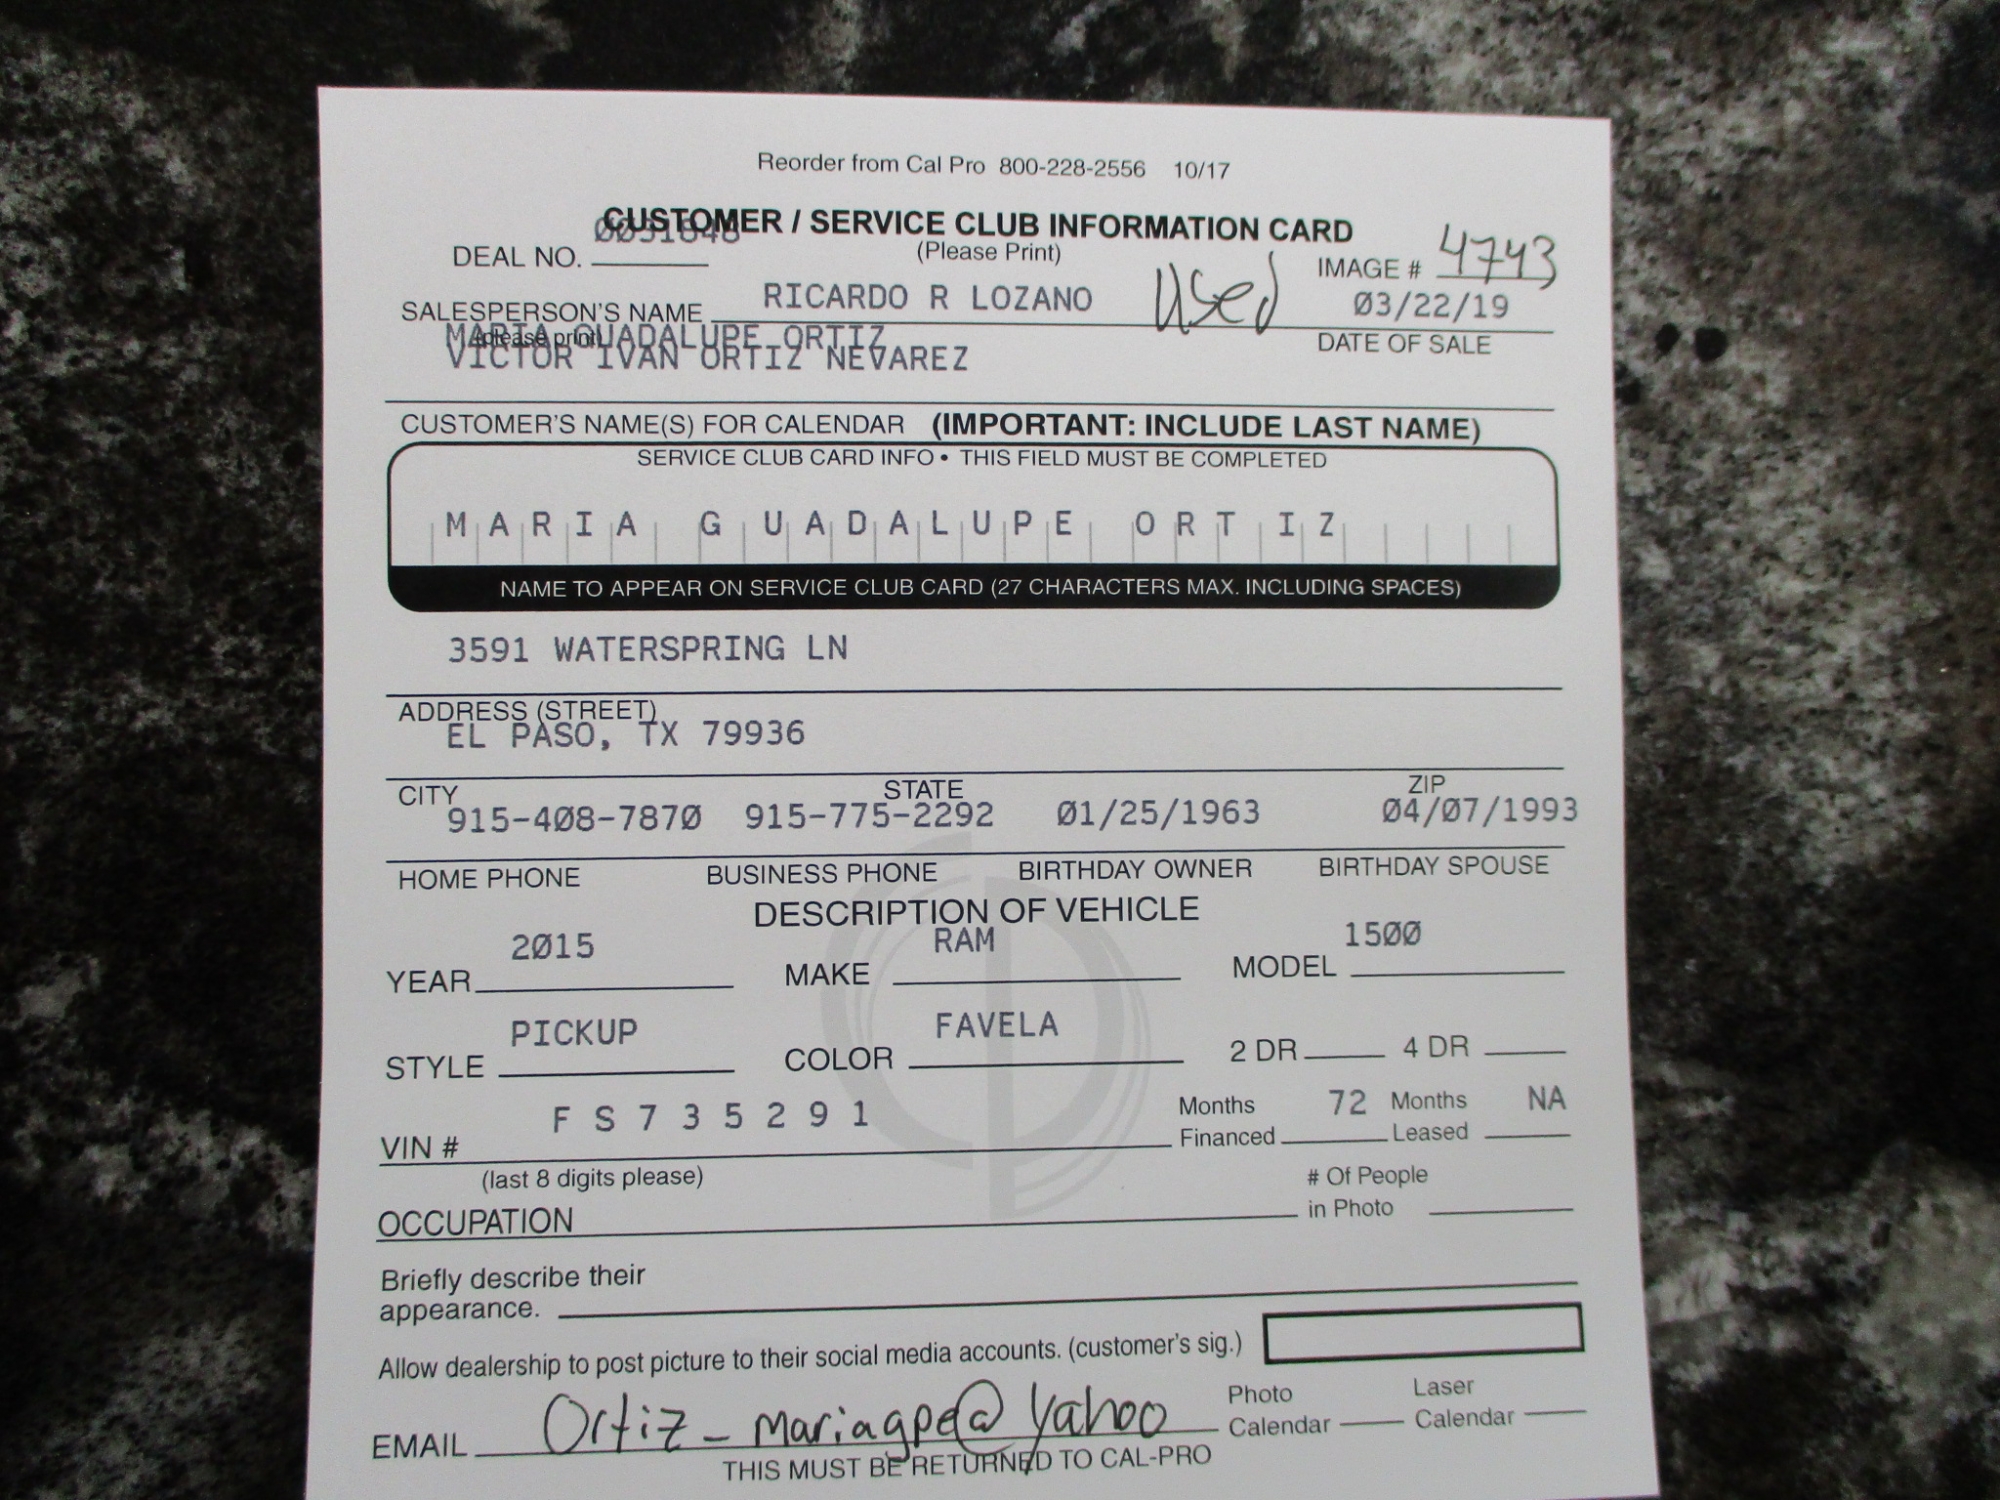 Reorder from Cal Pro 800-228-2556 10/17
CUSTOMER / SERVICE CLUB INFORMATION CARD
(Please Print)
DEAL NO.
IMAGE # 4743
SALESPERSON'S NAME RICARDO R LOZANO Used 03/22/19
(please print)
DATE OF SALE
MARIA GUADALUPE ORTIZ
VICTOR IVAN ORTIZ NEVAREZ
CUSTOMER'S NAME(S) FOR CALENDAR (IMPORTANT: INCLUDE LAST NAME)
SERVICE CLUB CARD INFO • THIS FIELD MUST BE COMPLETED
MARIA GUADALUPE ORTIZ
NAME TO APPEAR ON SERVICE CLUB CARD (27 CHARACTERS MAX. INCLUDING SPACES)
3591 WATERSPRING LN
ADDRESS (STREET)
EL PASO, TX 79936
CITY STATE ZIP
915-408-7870 915-775-2292 01/25/1963 04/07/1993
HOME PHONE BUSINESS PHONE BIRTHDAY OWNER BIRTHDAY SPOUSE
DESCRIPTION OF VEHICLE
YEAR 2015 MAKE RAM MODEL 1500
STYLE PICKUP COLOR FAVELA 2 DR 4 DR
VIN # F S 7 3 5 2 9 1 Months Financed 72 Months Leased NA
(last 8 digits please)
OCCUPATION # Of People in Photo
Briefly describe their
appearance.
Allow dealership to post picture to their social media accounts. (customer's sig.)
EMAIL Ortiz_mariagpe@yahoo Photo Calendar Laser Calendar
THIS MUST BE RETURNED TO CAL-PRO